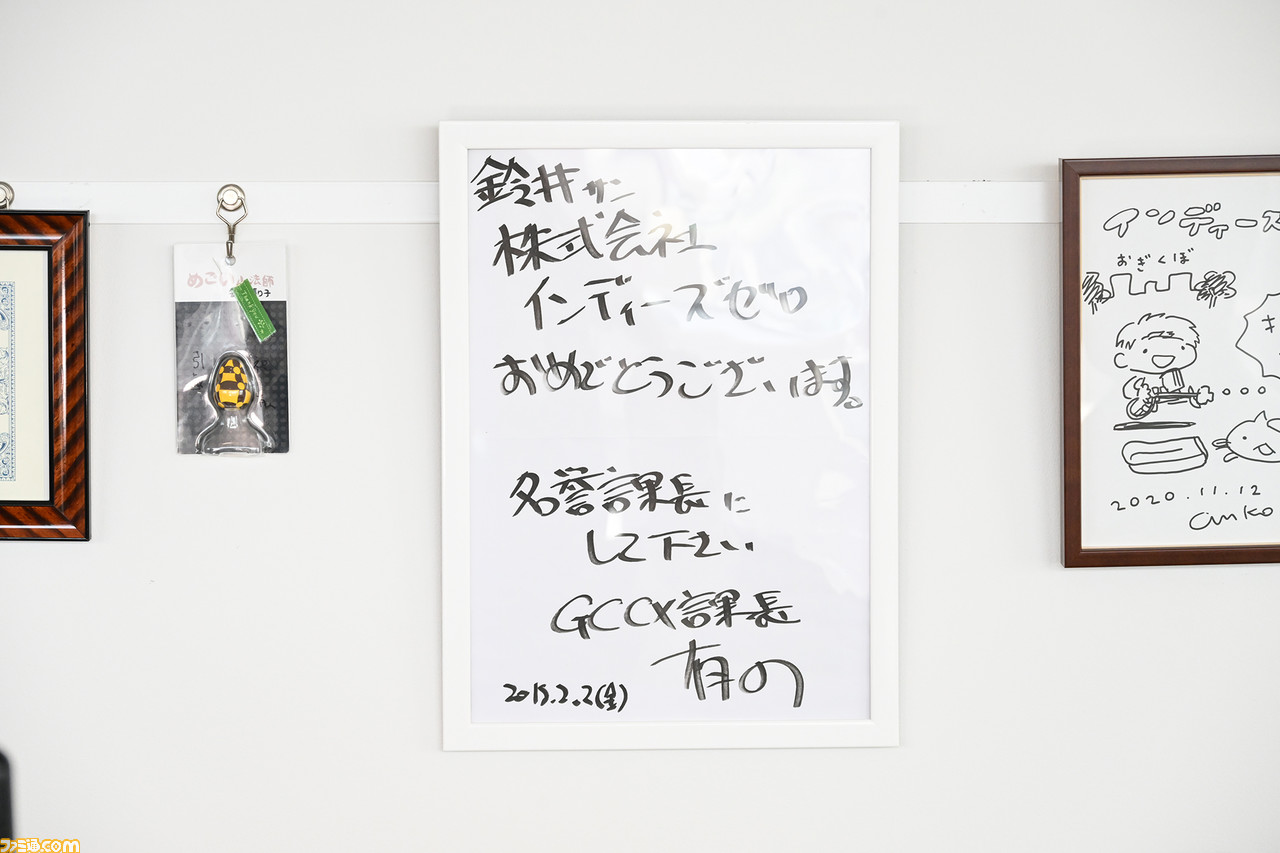 鈴井サン
株式会社
インディーズゼロ
おめでとうございます。
名誉課長に
して下さい
GCCX課長
有の
2015.2.2(金)
めごい
法師
インディーズ
おぎくぼ
キ
2020.11.12
anko
ファミ通.com